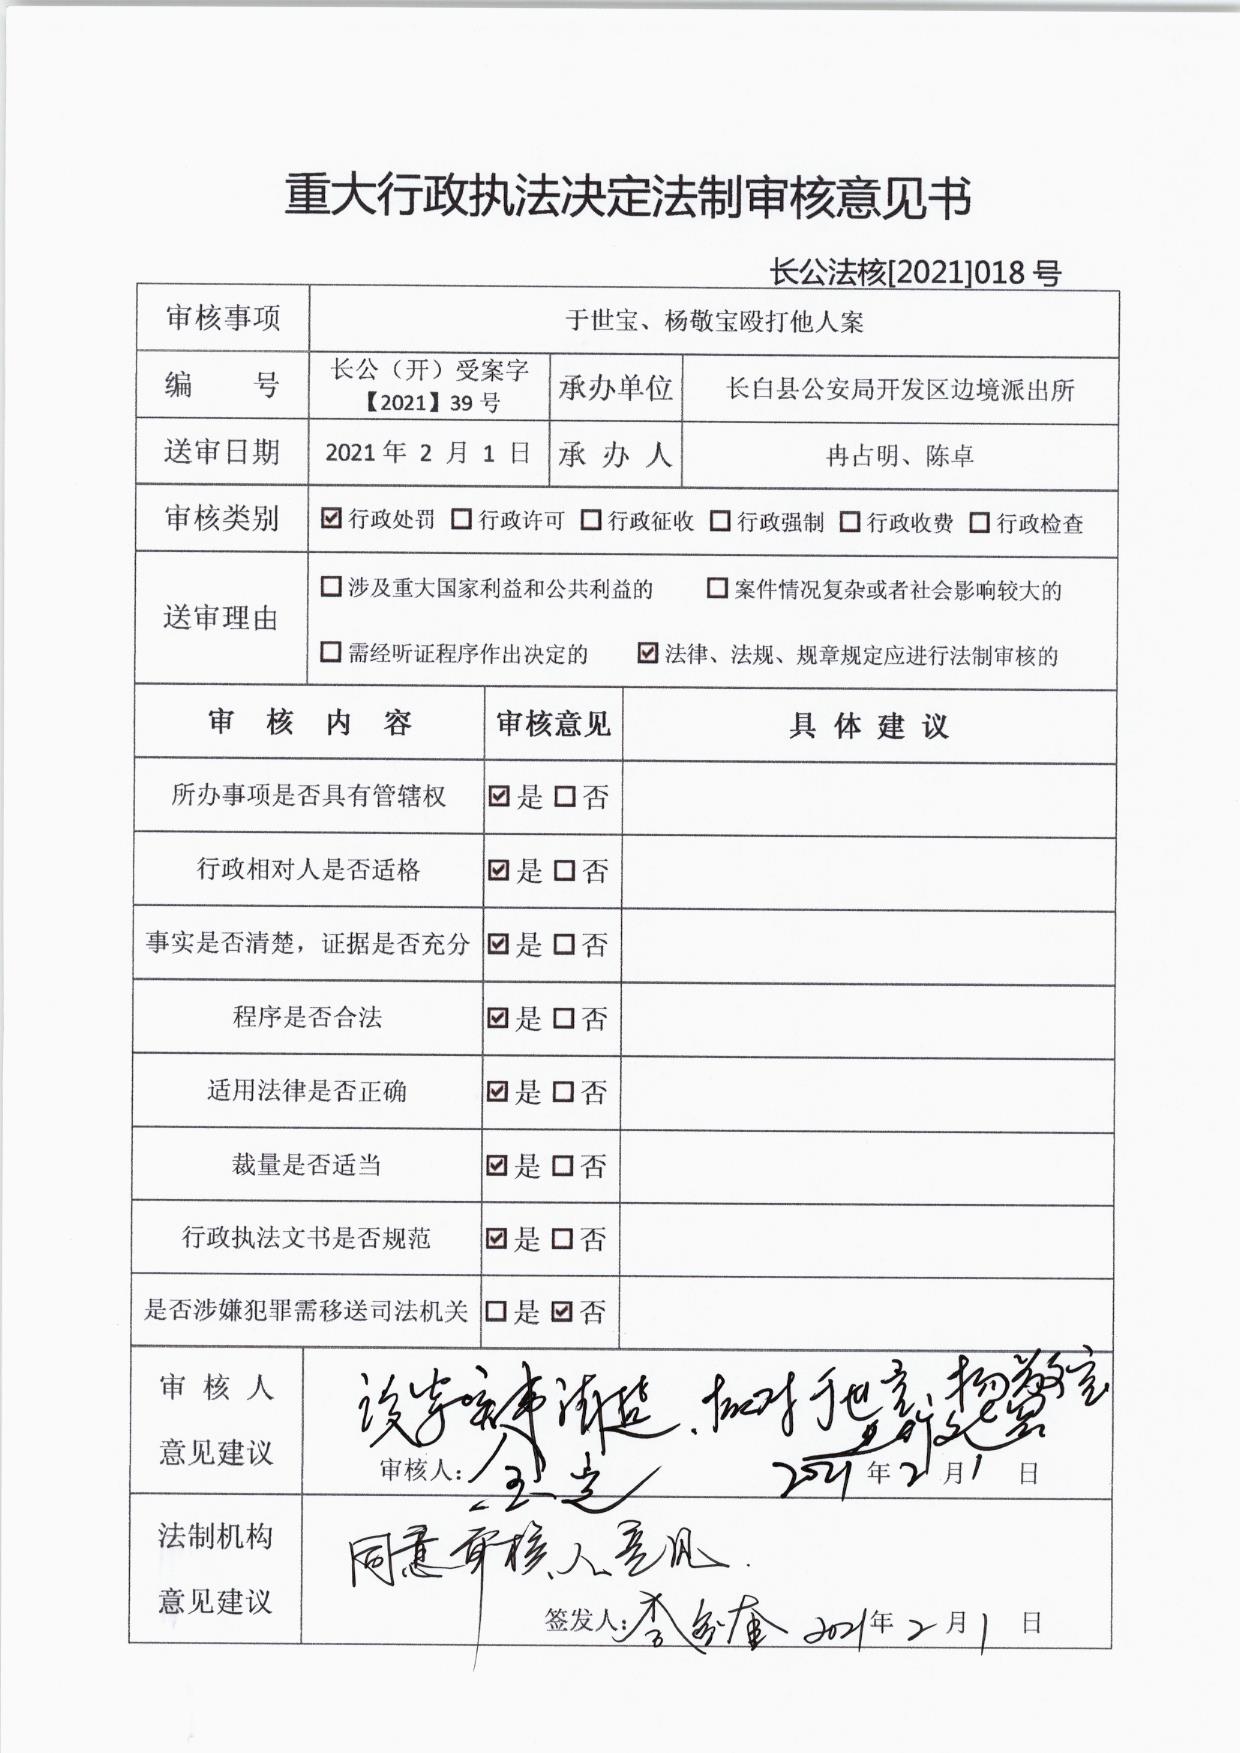 重大行政执法决定法制审核意见书
长公法核[2021]018 号
审核事项 于世宝、杨敬宝殴打他人案
编 号 长公（开）受案字【2021】39 号 承办单位 长白县公安局开发区边境派出所
送审日期 2021 年 2 月 1 日 承 办 人 冉占明、陈卓
审核类别 ☑行政处罚 □行政许可 □行政征收 □行政强制 □行政收费 □行政检查
送审理由 □涉及重大国家利益和公共利益的 □案件情况复杂或者社会影响较大的
□需经听证程序作出决定的 ☑法律、法规、规章规定应进行法制审核的
审 核 内 容 审核意见 具 体 建 议
所办事项是否具有管辖权 ☑是 □否
行政相对人是否适格 ☑是 □否
事实是否清楚，证据是否充分 ☑是 □否
程序是否合法 ☑是 □否
适用法律是否正确 ☑是 □否
裁量是否适当 ☑是 □否
行政执法文书是否规范 ☑是 □否
是否涉嫌犯罪需移送司法机关 □是 ☑否
审 核 人
意见建议
对于世宝、杨敬宝
审核人： 2021 年 2 月 1 日
法制机构
意见建议
同意审核人意见.
签发人：李 奎 2021 年 2 月 1 日